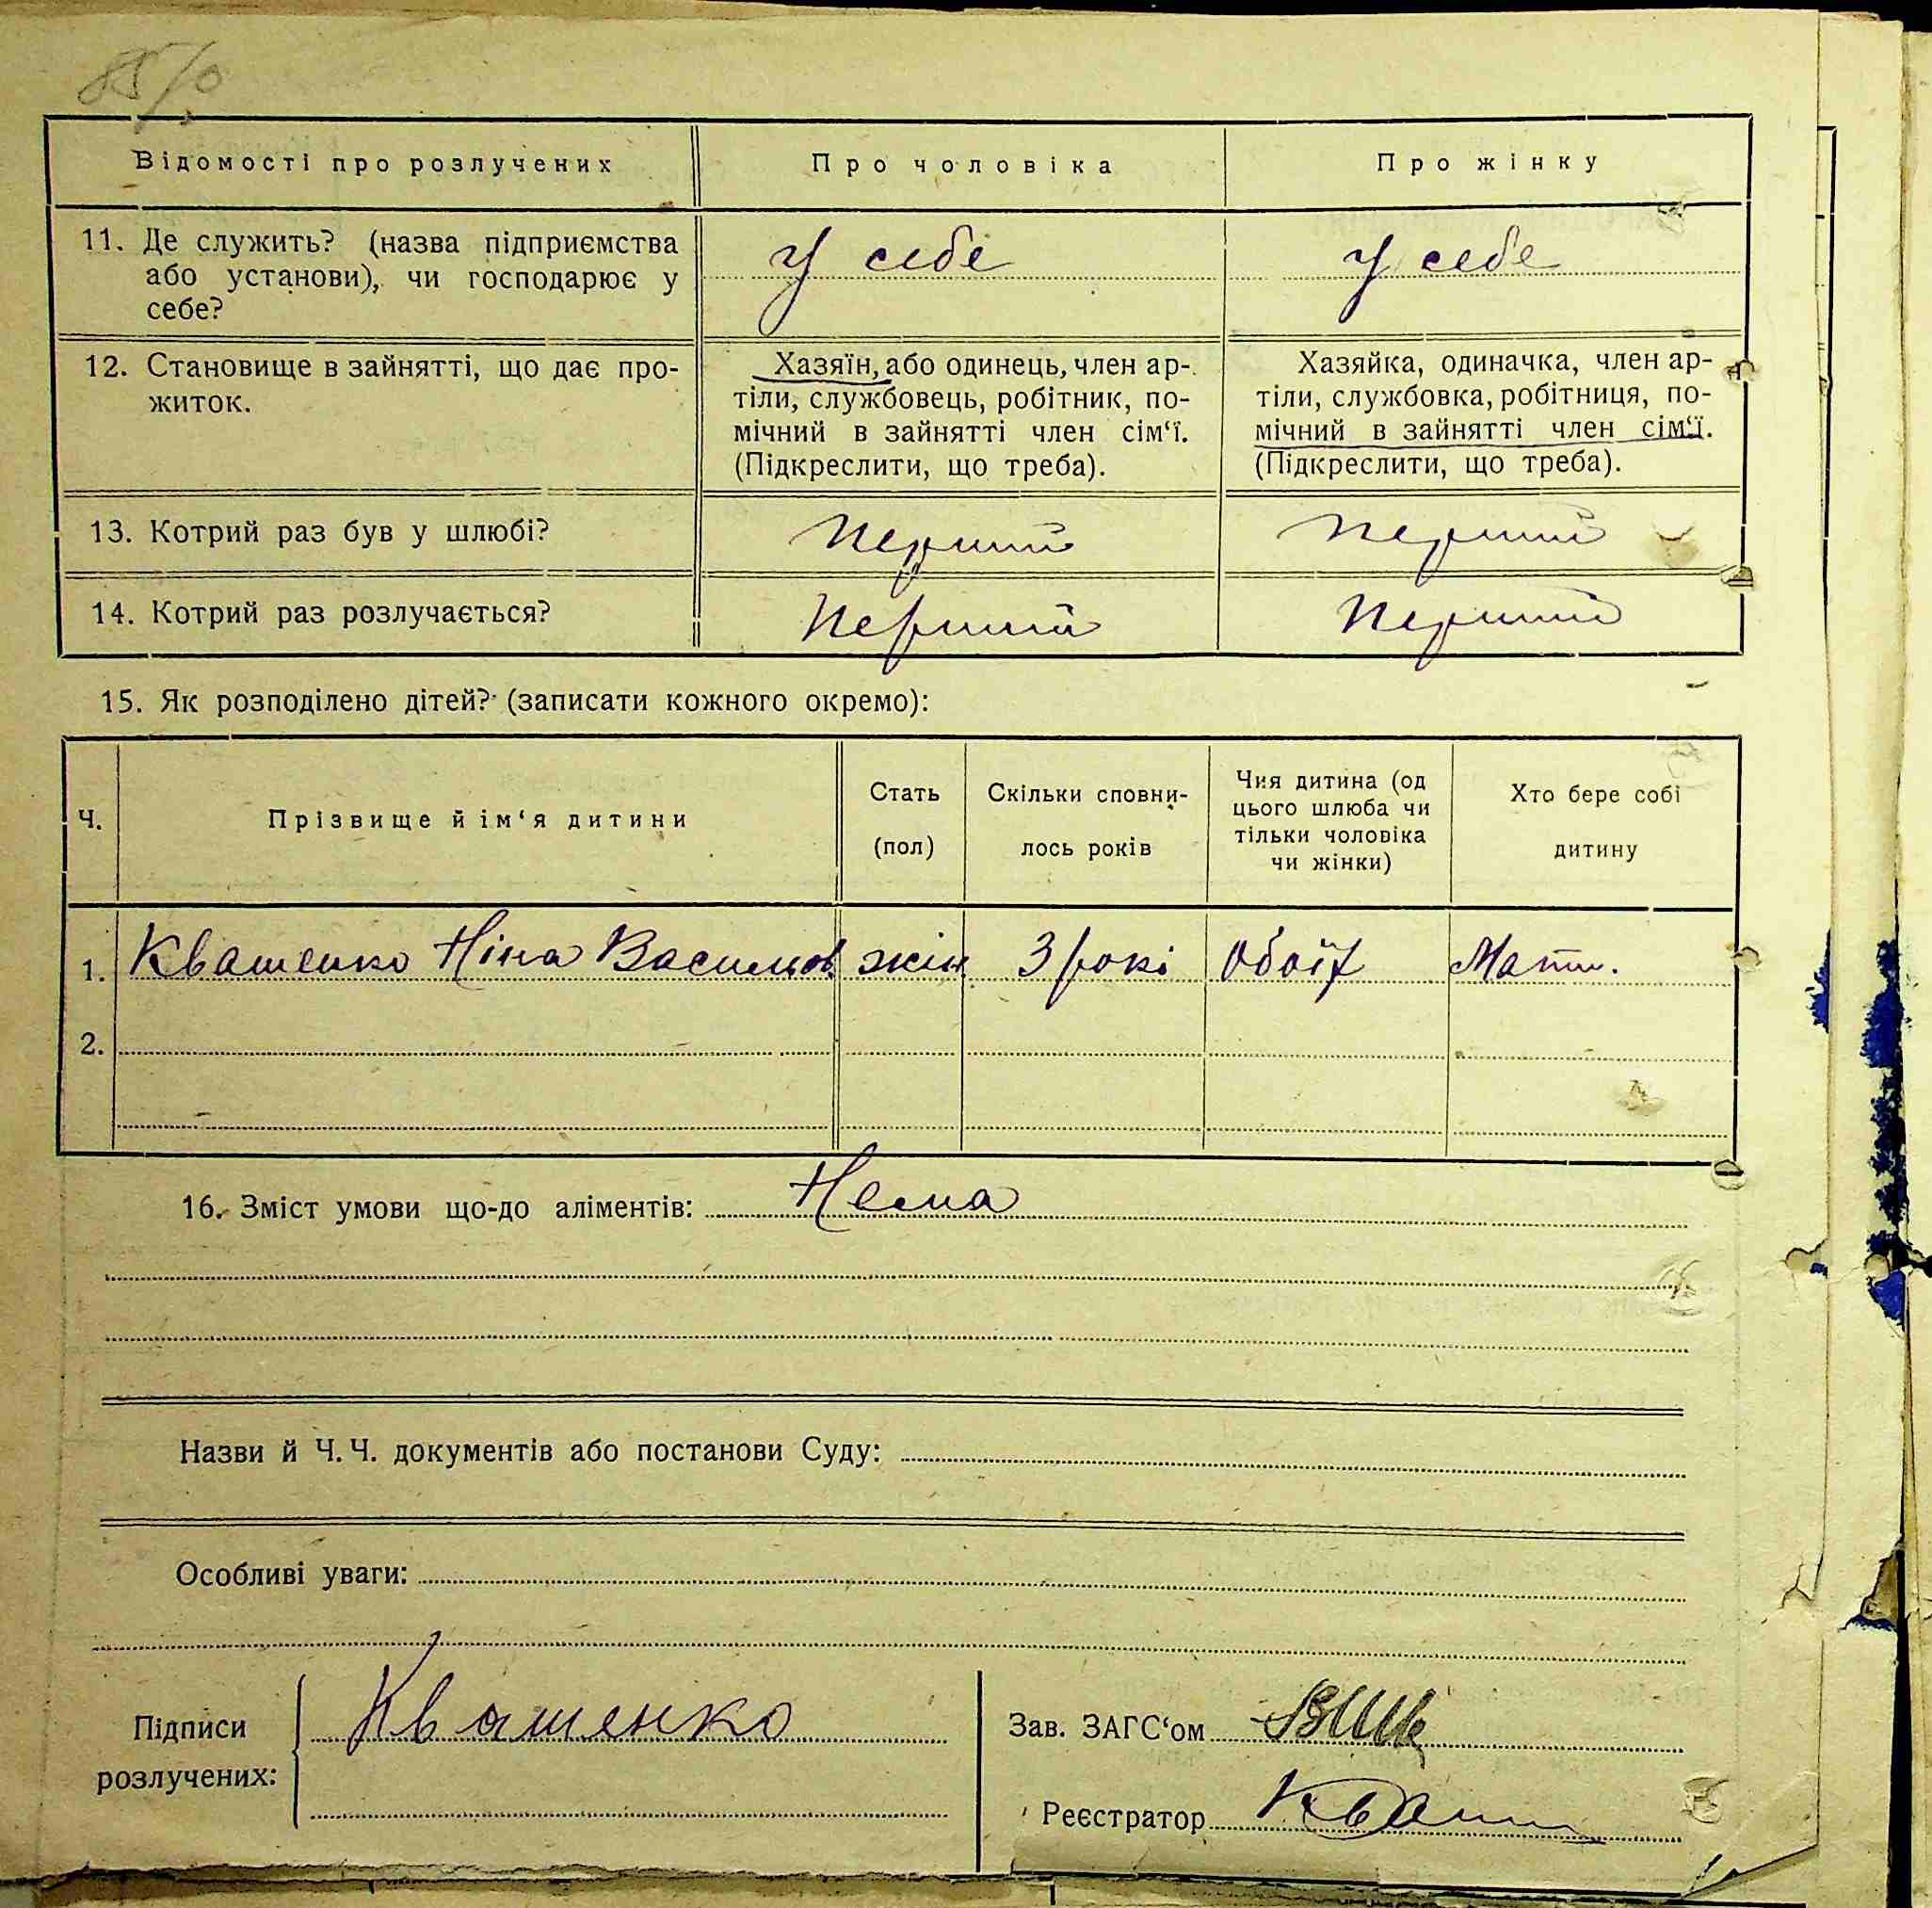 Відомості про розлучених
Про чоловіка
Про жінку
11. Де служить? (назва підприємства
або установи), чи господарює у
себе?
у себе
у себе
12. Становище в зайнятті, що дає про-
житок.
Хазяїн, або одинець, член ар-
тіли, службовець, робітник, по-
мічний в зайнятті член сім‘ї.
(Підкреслити, що треба).
Хазяйка, одиначка, член ар-
тіли, службовка, робітниця, по-
мічний в зайнятті член сім‘ї.
(Підкреслити, що треба).
13. Котрий раз був у шлюбі?
Перший
Перший
14. Котрий раз розлучається?
Перший
Перший
15. Як розподілено дітей? (записати кожного окремо):
Ч.
Прізвище й ім‘я дитини
Стать
(пол)
Скільки сповни-
лось років
Чия дитина (од
цього шлюба чи
тільки чоловіка
чи жінки)
Хто бере собі
дитину
1. Квашенко Ніна Васильов. жін. 3 рокі Обоїх Мати.
2.
16. Зміст умови що-до аліментів: Нема
Назви й Ч. Ч. документів або постанови Суду:
Особливі уваги:
Підписи
розлучених:
Квашенко
Зав. ЗАГС‘ом
Реєстратор